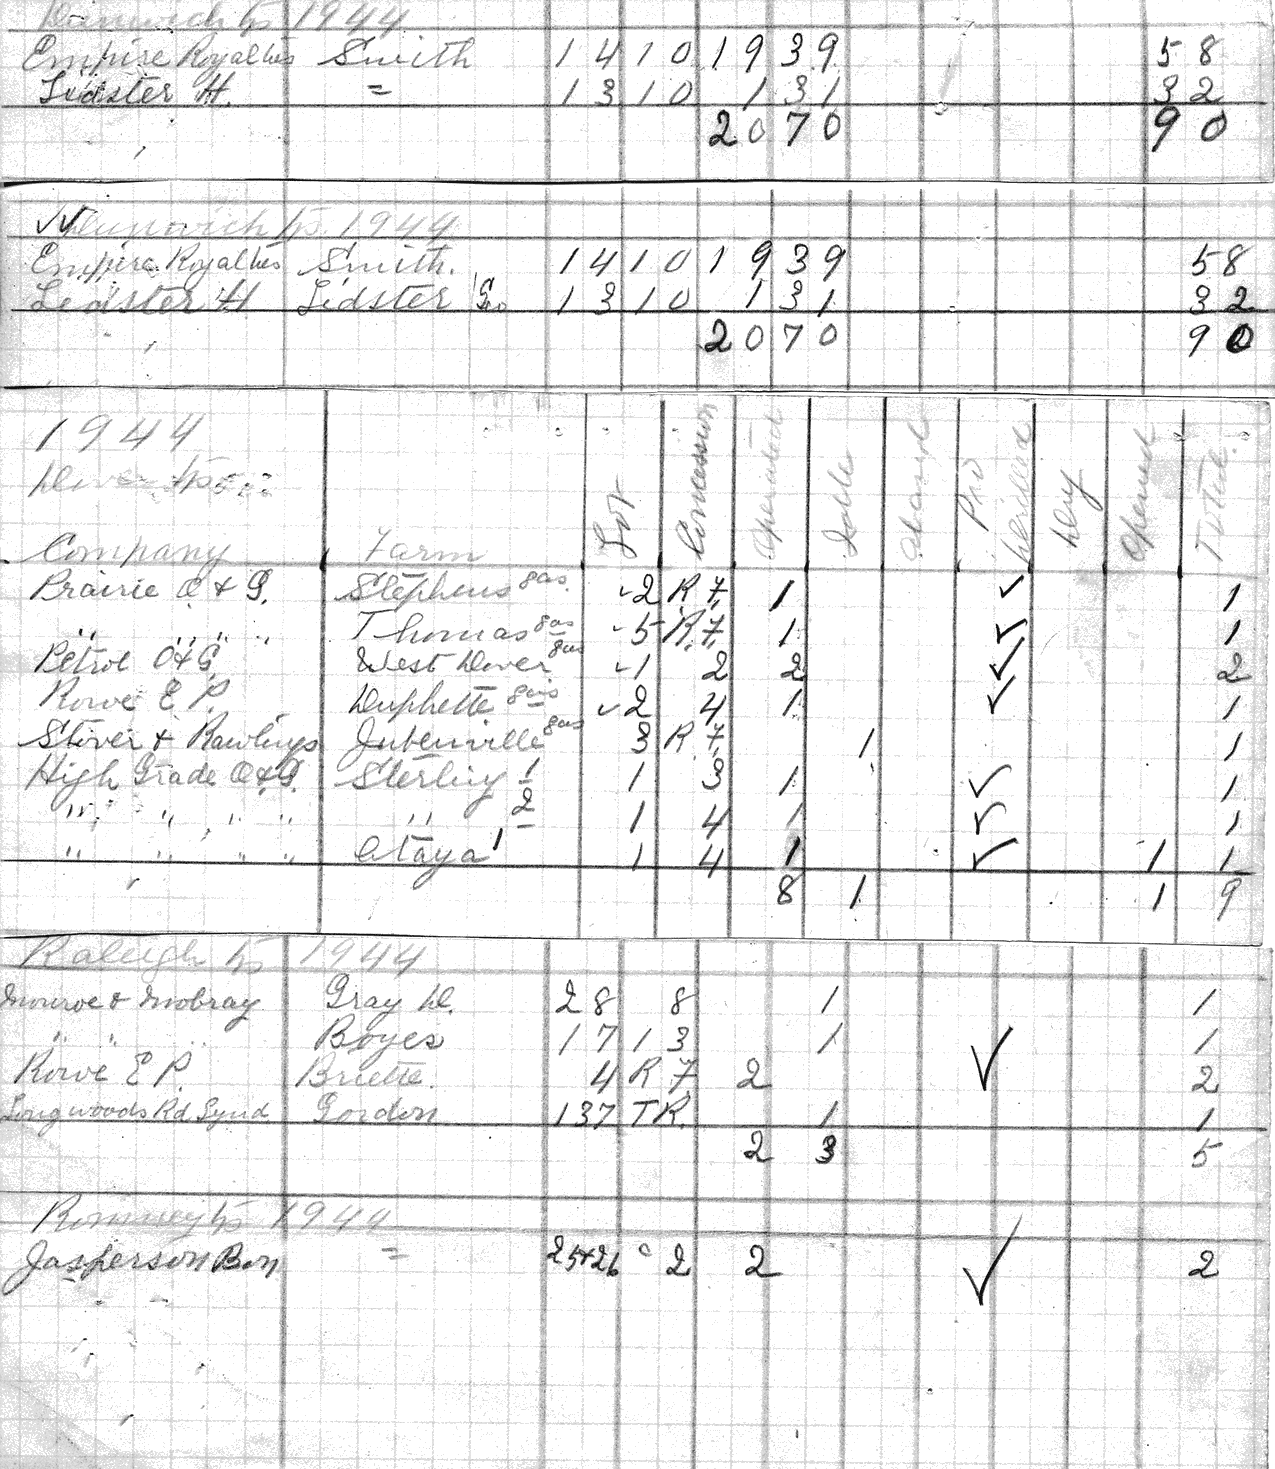 Dunwich Tp 1944
Empire Royalties Smith 14 10 19 39 58
Lidster H. = 13 10 1 31 32
20 70 90
Dunwich Tp. 1944
Empire Royalties Smith. 14 10 19 39 58
Lidster H Lidster Geo 13 10 1 31 32
20 70 90
1944
Dover Tp
Company Farm Lot Concession Operated Idle Aband Pro Drilled Dry Opened Total
Prairie O & G. Stephens gas ✓2 R 7 1 ✓ 1
" " " " Thomas gas ✓5 R.7 1 ✓ 1
Petrol O & G West Dover gas ✓1 2 2 ✓ 2
Rowe E P. Duphette gas ✓2 4 1 ✓ 1
Stover & Rawlings Jubenville gas 3 R 7 1 1
High Grade O & G. Sterling 1 1 3 1 ✓ 1
" " " " " 2 1 4 1 ✓ 1
" " " " Ataya 1 1 4 1 ✓ 1 1
8 1 1 9
Raleigh Tp 1944
Monroe & Mobray Gray D. 28 8 1 1
" " " Boyes 17 13 1 ✓ 1
Rowe E P. Briette. 4 R 7 2 2
Longwoods Rd Synd Gordon 137 TR. 1 1
2 3 5
Romney Tp 1944
Jasperson Bon = 25+26 2 2 ✓ 2